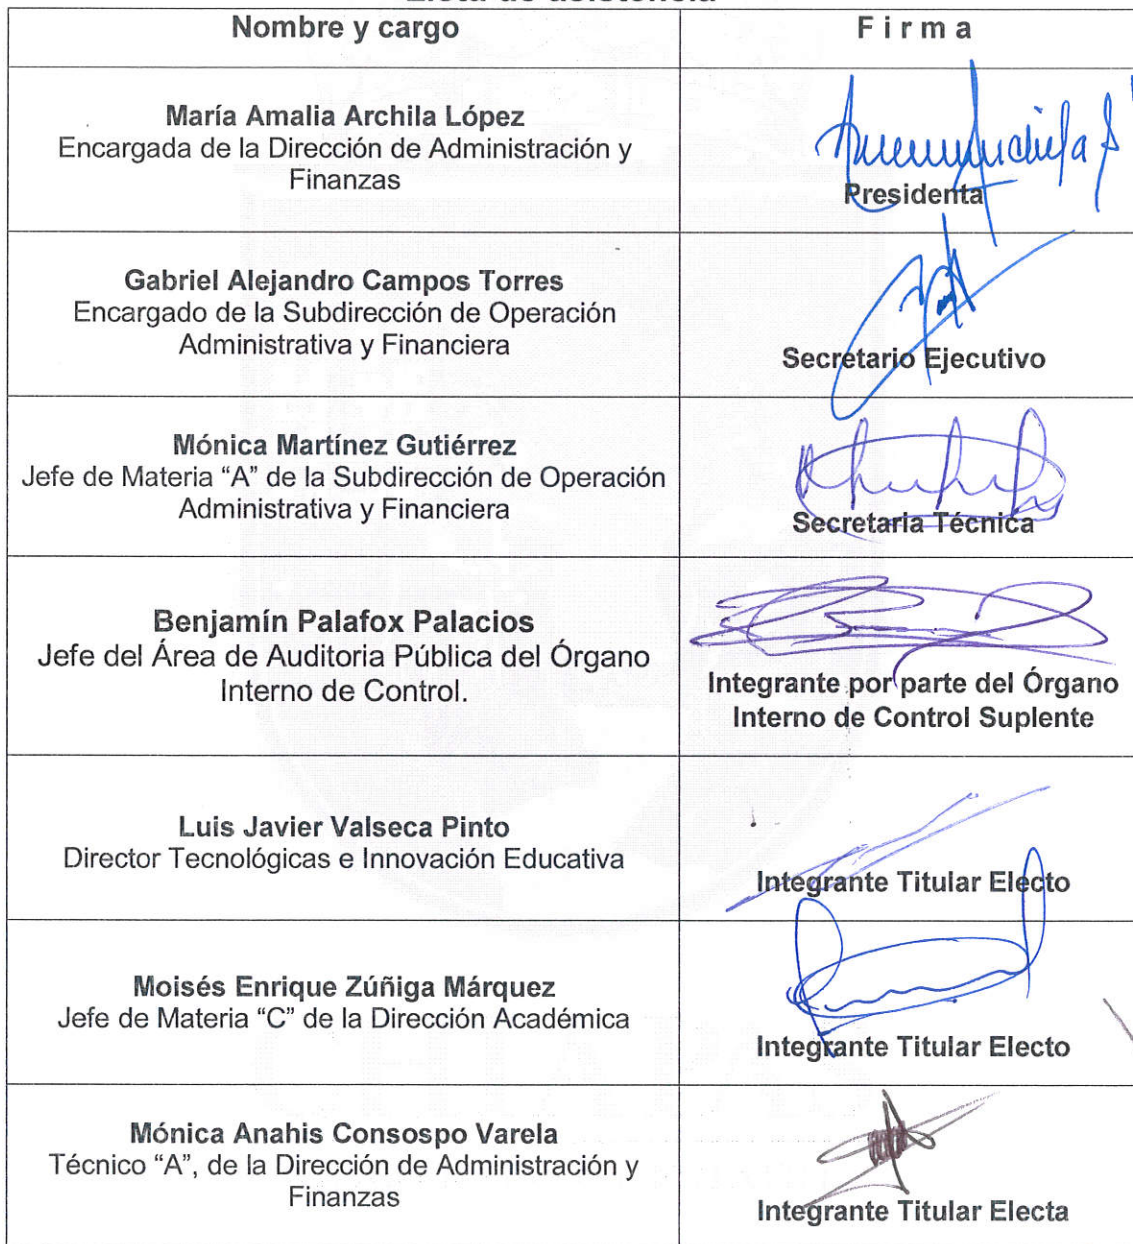 Lista de asistencia
Nombre y cargo
F i r m a
María Amalia Archila López
Encargada de la Dirección de Administración y
Finanzas
Presidenta
Gabriel Alejandro Campos Torres
Encargado de la Subdirección de Operación
Administrativa y Financiera
Secretario Ejecutivo
Mónica Martínez Gutiérrez
Jefe de Materia “A” de la Subdirección de Operación
Administrativa y Financiera
Secretaria Técnica
Benjamín Palafox Palacios
Jefe del Área de Auditoria Pública del Órgano
Interno de Control.
Integrante por parte del Órgano
Interno de Control Suplente
Luis Javier Valseca Pinto
Director Tecnológicas e Innovación Educativa
Integrante Titular Electo
Moisés Enrique Zúñiga Márquez
Jefe de Materia “C” de la Dirección Académica
Integrante Titular Electo
Mónica Anahis Consospo Varela
Técnico “A”, de la Dirección de Administración y
Finanzas
Integrante Titular Electa